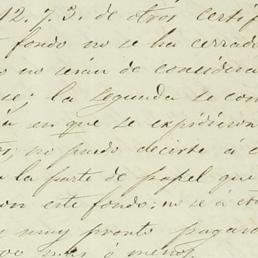 12. 7. 3. de otros certif
fondo no se ha cerrado
no serán de considera
se; la segunda se con
en que se expidieron
no puedo decirte á c
la parte de papel que
on este fondo: no sé á
muy pronto pagara
mas ó menos